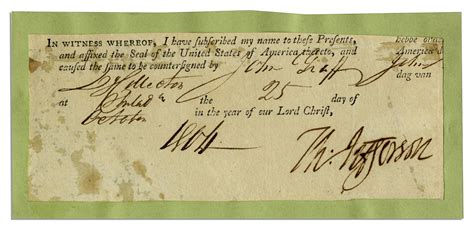 IN WITNESS WHEREOF, I have subscribed my name to these Presents, hebbe
and affixed the Seal of the United States of America thereto, and America
caused the same to be countersigned by John Graff John
D Collector dag van
at Philad the 25 day of
October in the year of our Lord Christ,
1804 Th: Jefferson